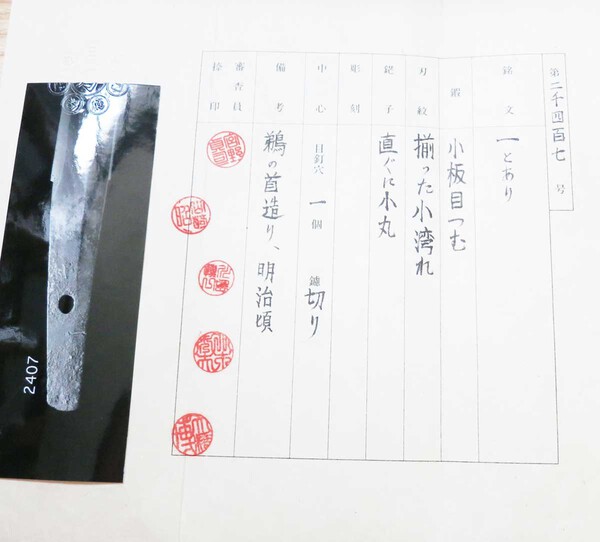 第二千四百七号
銘文 一とあり
鍛 小板目つむ
刃紋 揃った小湾れ
鋩子 直ぐに小丸
彫刻
中心 目釘穴 一個 鑢 切り
備考 鵜の首造り、明治頃
審査員捺印
2407